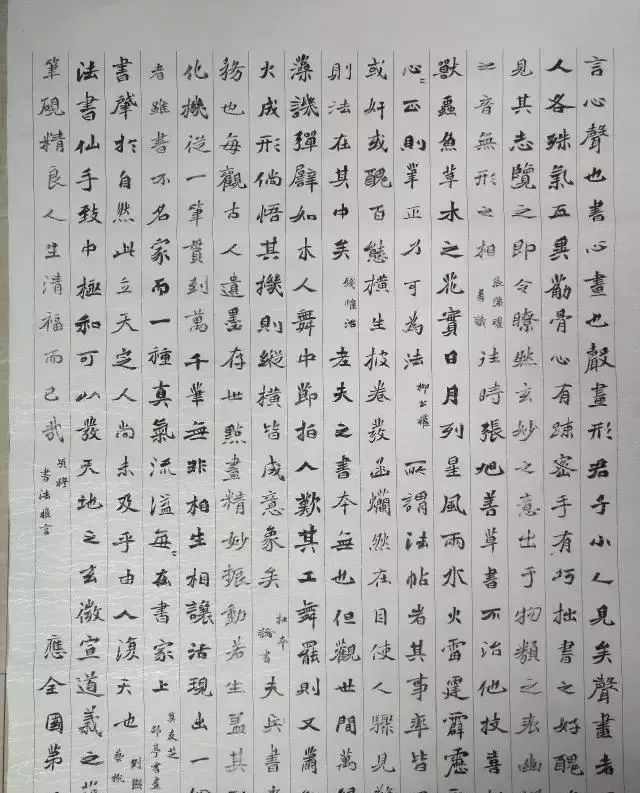 言心聲也書心畫也聲畫形君子小人見矣聲畫者
人各殊氣血異勁骨心有疎密手有巧拙書之好醜
見其志覽之即令瞭然玄妙之意出于物類之表幽
之音無形之相 張懷瓘 書議 往時張旭善草書不治他技喜
獸蟲魚草木之花實日月列星風雨水火雷霆霹靂
心=正則筆正乃可為法 柳公權 所謂法帖者其事率皆
或奸或醜百態橫生披卷發函爛然在目使人驟見
則法在其中矣 錢惟治 老夫之書本無也但觀世間萬
藻譏彈譬如木人舞中節拍人歎其工舞罷則又蕭
火成形倘悟其機則縱橫皆成意象矣 杜本 論書 夫兵書
務也每觀古人遺墨存世點畫精妙振動若生蓋其
化機從一筆貫到萬千筆無非相生相讓活現出一個
者雖書不名家而一種真氣流溢每=在書家上 莫友芝 邵亭書畫
書肇於自然此立天定人尚未及乎由人復天也 劉熙 藝概
法書仙手致中極和可以發天地之玄微宣道義之
筆硯精良人生清福而已哉 項穆 書法雅言 應全國第